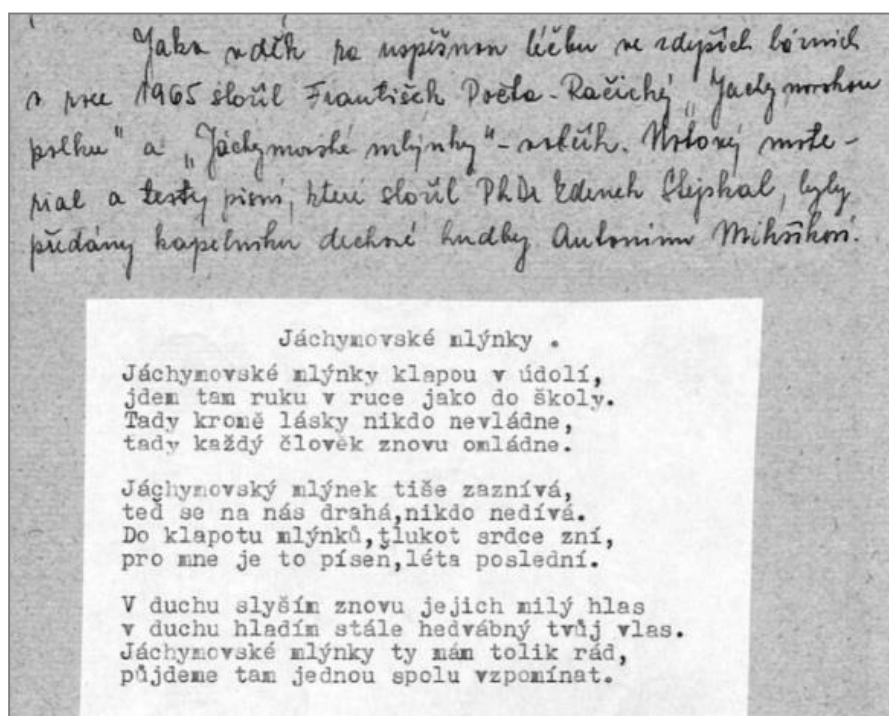 Jako vděk za uspěšnou léčbu ve zdejších lázních
v roce 1965 složil František Počta-Račický „Jachymovskou
polku" a „Jáchymovské mlýnky"-valčík. Notový mate-
rial a texty písní, které složil PhDr Zdenek Stejskal, byly
předány kapelníku dechové hudby Antonínu Mikšíkovi.
Jáchymovské mlýnky .
Jáchymovské mlýnky klapou v údolí,
jdem tam ruku v ruce jako do školy.
Tady kromě lásky nikdo nevládne,
tady každý člověk znovu omládne.
Jáchymovský mlýnek tiše zaznívá,
teď se na nás drahá,nikdo nedívá.
Do klapotu mlýnků,tlukot srdce zní,
pro mne je to píseň,léta poslední.
V duchu slyším znovu jejich milý hlas
v duchu hladím stále hedvábný tvůj vlas.
Jáchymovské mlýnky ty mám tolik rád,
půjdeme tam jednou spolu vzpomínat.